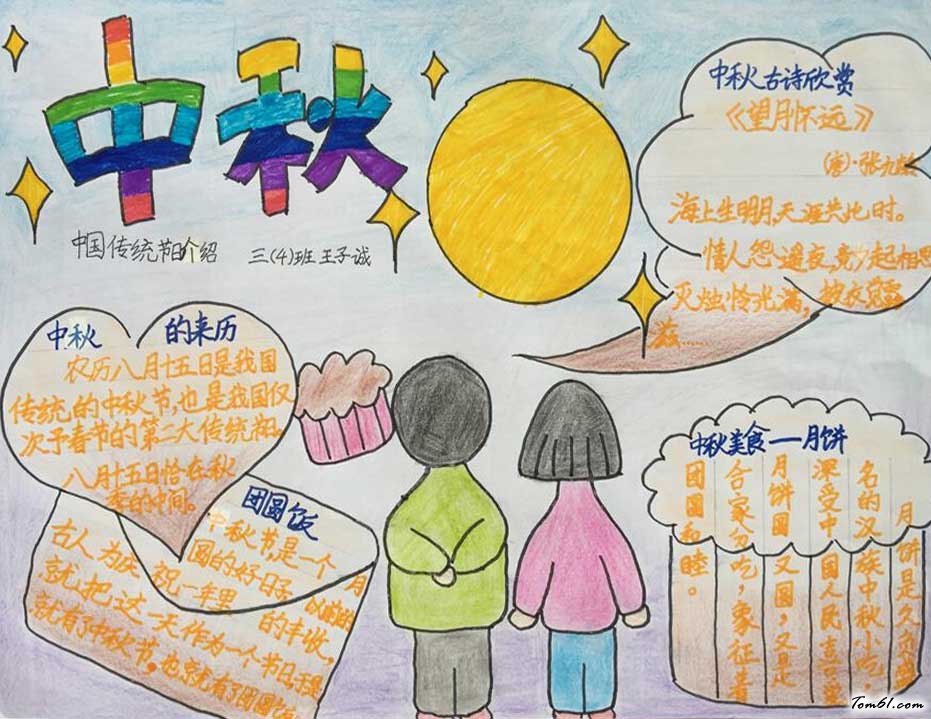 中秋
中国传统节日介绍 三(4)班 王子诚
中秋古诗欣赏
《望月怀远》
(唐)·张九龄
海上生明月,天涯共此时。
情人怨遥夜,竟夕起相思
灭烛怜光满,披衣觉露
滋……
中秋 的来历
农历八月十五日是我国
传统的中秋节,也是我国仅
次于春节的第二大传统节。
八月十五日恰在秋
季的中间。
团圆饭
中秋节,是一个月
圆的好日子,以前的
古人为庆祝一年里的丰收,
就把这一天作为一个节日,于是
就有了中秋节。也就有了团圆饭
中秋美食——月饼
月饼是久负盛
名的汉族中秋小吃,
深受中国人民喜爱
月饼圆又圆,又是
合家分吃,象征着
团圆和睦。
Tom61.com